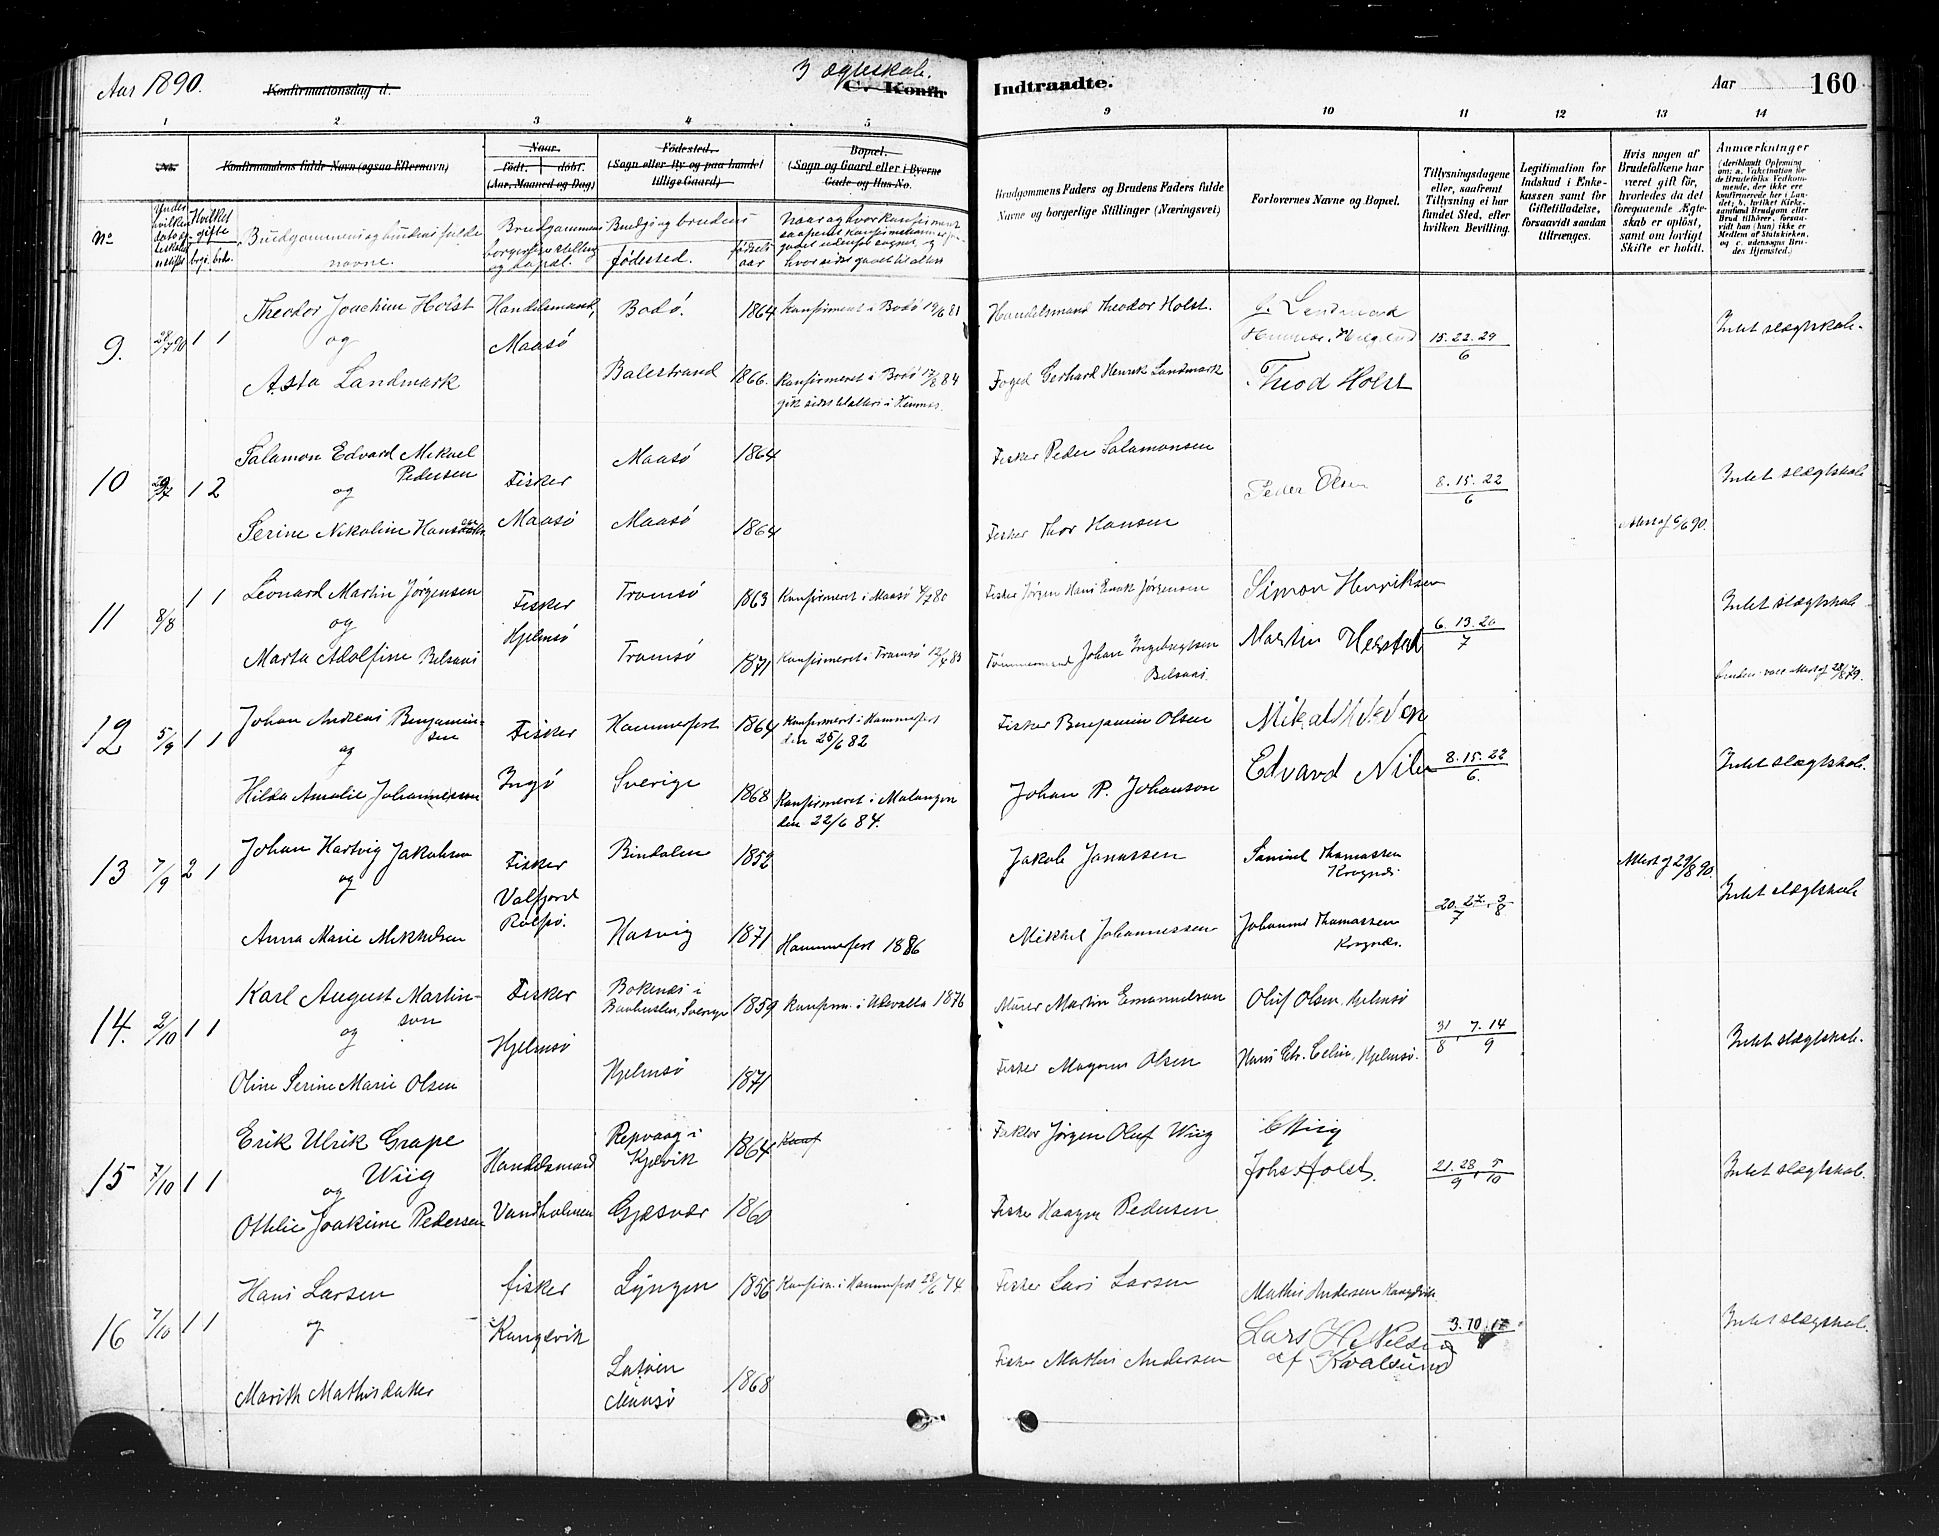 Aar 1890.
Konfirmationsdag d.
3 ægteskab.
C. Konfir
1 2 3 4 5
No. Konfirmandens fulde Navn (ogsaa Efternavn)
Naar
født. døbt.
(Aar, Maaned og Dag)
Fødested.
(Sogn eller By og paa landet
tillige Gaard)
Bopæl.
(Sogn og Gaard eller i Byerne
Gade og Hus-No.
No
Hvilket
gifte
brg. brd.
Brudgommens og brudens fulde
navne.
Brudgommens
borgerlige stilling
og bopæl.
Brudg. og brudens
fødested.
fødsels
aar
Naar og hvor konfirmeret
9. 28/7 90 1 1
Theodor Joachim Holst
og
Asta Landmark
Handelsmand,
Maasö
Bodö. 1864 Konfirmeret i Bodö 19/6 81
Balestrand 1866. Konfirmeret i Bodö 17/8 84
gik sidst til alters i
10 1 2
Salamon Edvard Mikael
Pedersen
og
Serine Nikoline Hansdatter
Fisker
Maasö
Maasö 1864
Maasö 1864
11 8/8 1 1
Leonard Martin Jörgensen
og
Marta Adolfine Belsaas
Fisker
Hjelmsö
Tromsö 1863 Konfirmeret i Maasö 4/7 80
Tromsö 1871 Konfirmeret i Tromsö 12/4 85
12 5/9 1 1
Johan Andreas Benjamin-
sen
og
Hilda Amalie Johannesson
Fisker
Ingö
Hammerfest 1864 Konfirmeret i Hammerfest
den 25/6 82
Sverige 1868 Konfirmeret i Malangen
den 22/6 84.
13 7/9 2 1
Johan Hartvig Jakobsen
og
Anna Marie Mikkelsen
Fisker
Valfjord
Rolfsö.
Bindalen 1852
Hasvig 1871 Hammerfest 1886
14. 2/10 1 1
Karl August Martin-
son
og
Oline Serine Marie Olsen
Fisker
Hjelmsö
Bokenäs i
Baahuslen, Sverige 1859 Konfirm. i Udevalla 1876
Hjelmsö 1871
15 7/10 1 1
Erik Ulrik Grape
Wiig
og
Othlie Joakime Pedersen
Handelsmand
Vandholmen
Repvaag i
Kjelvik 1864 Konf
Gjesvær 1860
16 7/10 1 1
Hans Larsen
og
Marith Mathisdatter
fisker
Kanglvik
Lyngen 1856 Konfirm. i Hammerfest 28/6 74
Maasö 1868
Indtraadte.
Aar 160
9 10 11 12 13 14
Brudgommens Faders og Brudens Faders fulde
Navne og borgerlige Stillinger (Næringsvei)
Forlovernes Navne og Bopæl.
Tillysningsdagene
eller, saafremt
Tillysning ei har
fundet Sted, efter
hvilken Bevilling.
Legitimation for
Indskud i Enke-
kassen samt for
Giftetilladelse,
forsaavidt saadan
tiltrænges.
Hvis nogen af
Brudefolkene har
været gift før,
hvorledes da det
foregaaende Ægte-
skab er opløst,
samt om lovligt
Skifte er holdt.
Anmærkninger
(deriblandt Oplysning
om: a. Vaccination for
de Brudefolks Vedkom-
mende, der ikke ere
konfirmerede her i Lan-
det; b. hvilket Kirke-
samfund Brudgom eller
Brud tilhører, forsaa-
vidt han (hun) ikke er
Medlem af Statskirken,
og c. udensogns Bru-
des Hjemsted.)
Handelsmand Theodor Holst.
Foged Gerhard Henrik Landmark
Theod Holst
15. 22. 29
6
Intet slægtskab.
Fisker Peder Salamonsen
Fisker Thor Hansen
Peder Olsen
8. 15. 22
6
Attest af 6/6 90.
Intet slægtskab
Fisker Jörgen Hans Enok Jörgensen
Tömmermand Johan Ingebrigtsen
Belsaas.
Simon Henriksen
Martin Herstad
6. 13. 20
7
Intet slægtskab
Bruden vacc. Attest af 28/8 79.
Fisker Benjamin Olsen
Johan P. Johanson
Edvard
8. 15. 22
6.
Intet slægtskab.
Jakob Jonassen
Mikkel Johannessen
Samuel Thomassen
Krognæs
Johannes Thomassen
Krognæs.
20. 27. 3
7 8
Attest af 29/8 90.
Intet slægtskab
Murer Martin Emanuelson
Fisker Magnus Olsen
Oluf Olsen, Hjelmsö
Hans Chr. Celin, Hjelmsö.
31 7. 14
8 9
Intet slægtskab.
Faktor Jörgen Oluf Wiig
Fisker Haagen Pedersen
E Wiig
Johs Holst.
21. 28. 5
9 10
Intet slægtskab.
Fisker Lars Larsen
Fisker Mathis Andersen
Mathis Andersen
Lars H. Nilsen
af Kvalsund
3. 10. 17
Intet slægtskab.